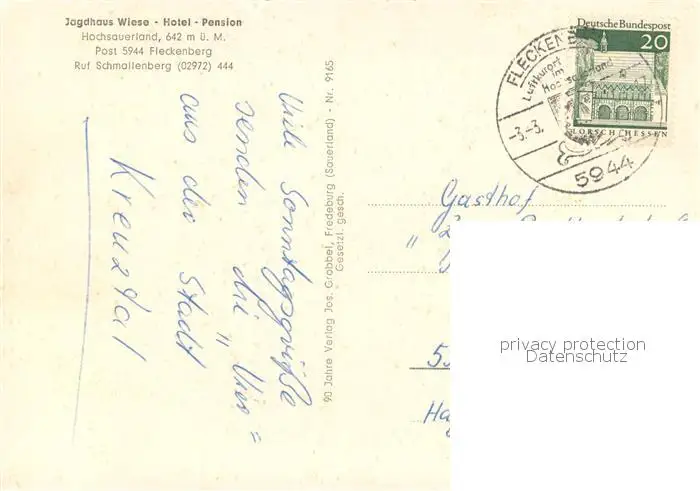 Jagdhaus Wiese - Hotel - Pension
Hochsauerland, 642 m ü. M.
Post 5944 Fleckenberg
Ruf Schmallenberg (02972) 444
Deutsche Bundespost
20
LORSCH/HESSEN
FLECKENB
Luftkurort
im
Hochsauerland
-3.-3.
5944
Viele Sonntagsgrüße
senden die „Vier=
aus der Stadt
Kreuztal
90 Jahre Verlag Jos. Grobbel, Fredeburg (Sauerland) - Nr. 9165
Gesetzl. gesch.
Gasthof
privacy protection
Datenschutz